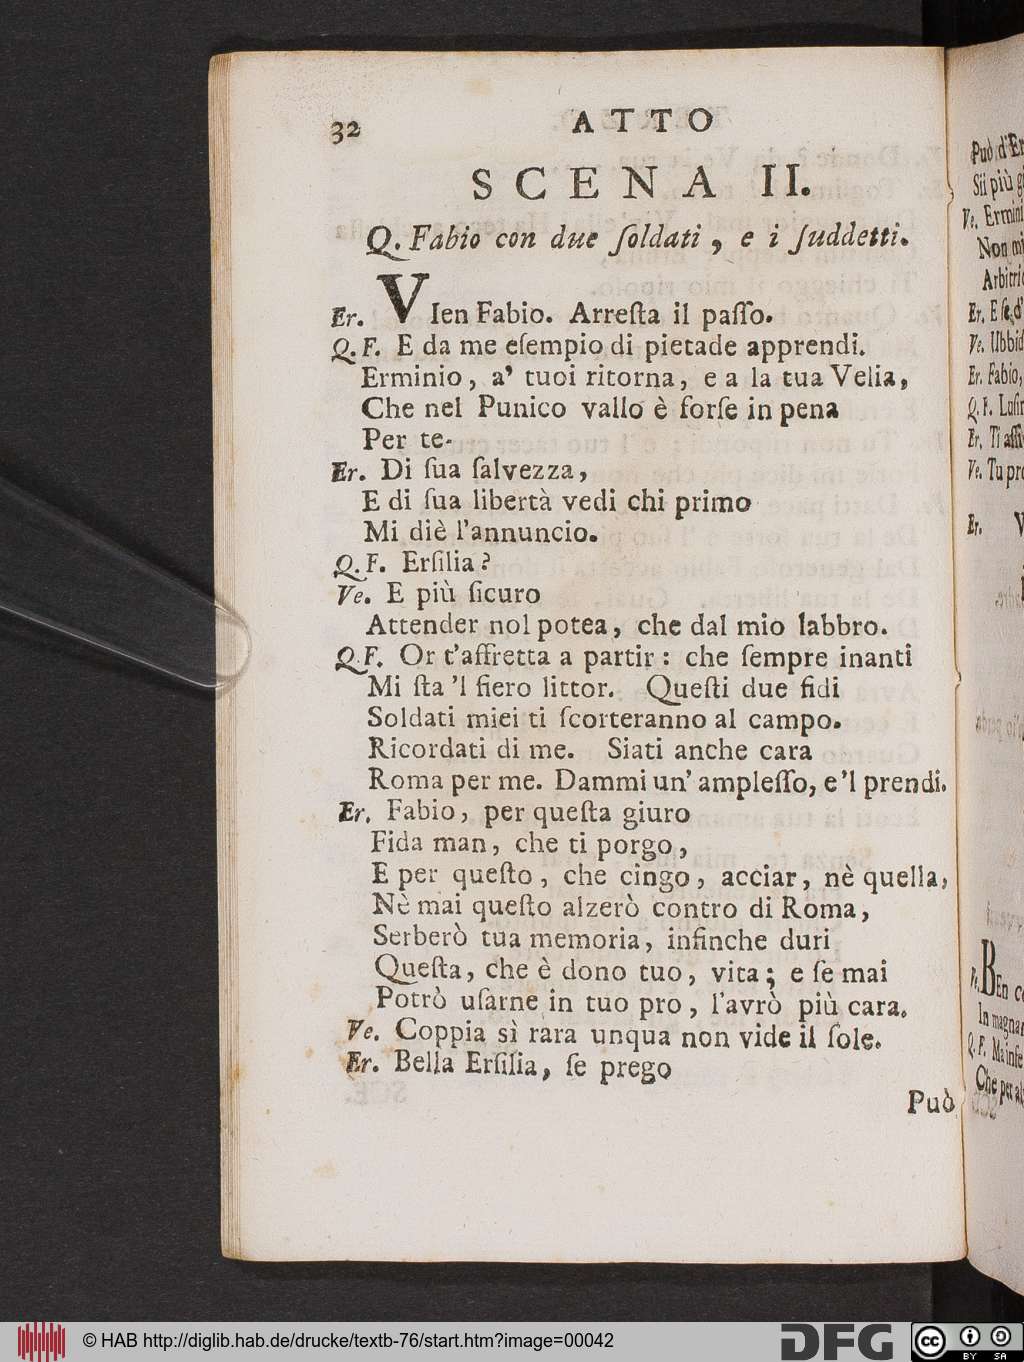 32
ATTO
SCENA II.
Q. Fabio con due ſoldati, e i ſuddetti.
Er. VIen Fabio. Arreſta il paſſo.
Q. F. E da me eſempio di pietade apprendi.
Erminio, a' tuoi ritorna, e a la tua Velia,
Che nel Punico vallo è forſe in pena
Per te-
Er. Di ſua ſalvezza,
E di ſua libertà vedi chi primo
Mi diè l'annuncio.
Q. F. Erſilia?
Ve. E più ſicuro
Attender nol potea, che dal mio labbro.
Q. F. Or t'affretta a partir: che ſempre inanti
Mi ſta 'l fiero littor. Queſti due fidi
Soldati miei ti ſcorteranno al campo.
Ricordati di me. Siati anche cara
Roma per me. Dammi un' ampleſſo, e 'l prendi.
Er. Fabio, per queſta giuro
Fida man, che ti porgo,
E per queſto, che cingo, acciar, nè quella,
Nè mai queſto alzerò contro di Roma,
Serberò tua memoria, infinche duri
Queſta, che è dono tuo, vita; e ſe mai
Potrò uſarne in tuo pro, l'avrò più cara.
Ve. Coppia sì rara unqua non vide il ſole.
Er. Bella Erſilia, ſe prego
Può
Può d'Er
Sii più
Ve. Ermini
Non mi
Er. E ſe d'
Ve. Ubbid
Er. Fabio,
Q. F.
Er. Ti aſſi
Ve. Tu pr
Er. V
BEn
In magna
Q. F.
Che per
© HAB http://diglib.hab.de/drucke/textb-76/start.htm?image=00042
DFG
cc
BY SA